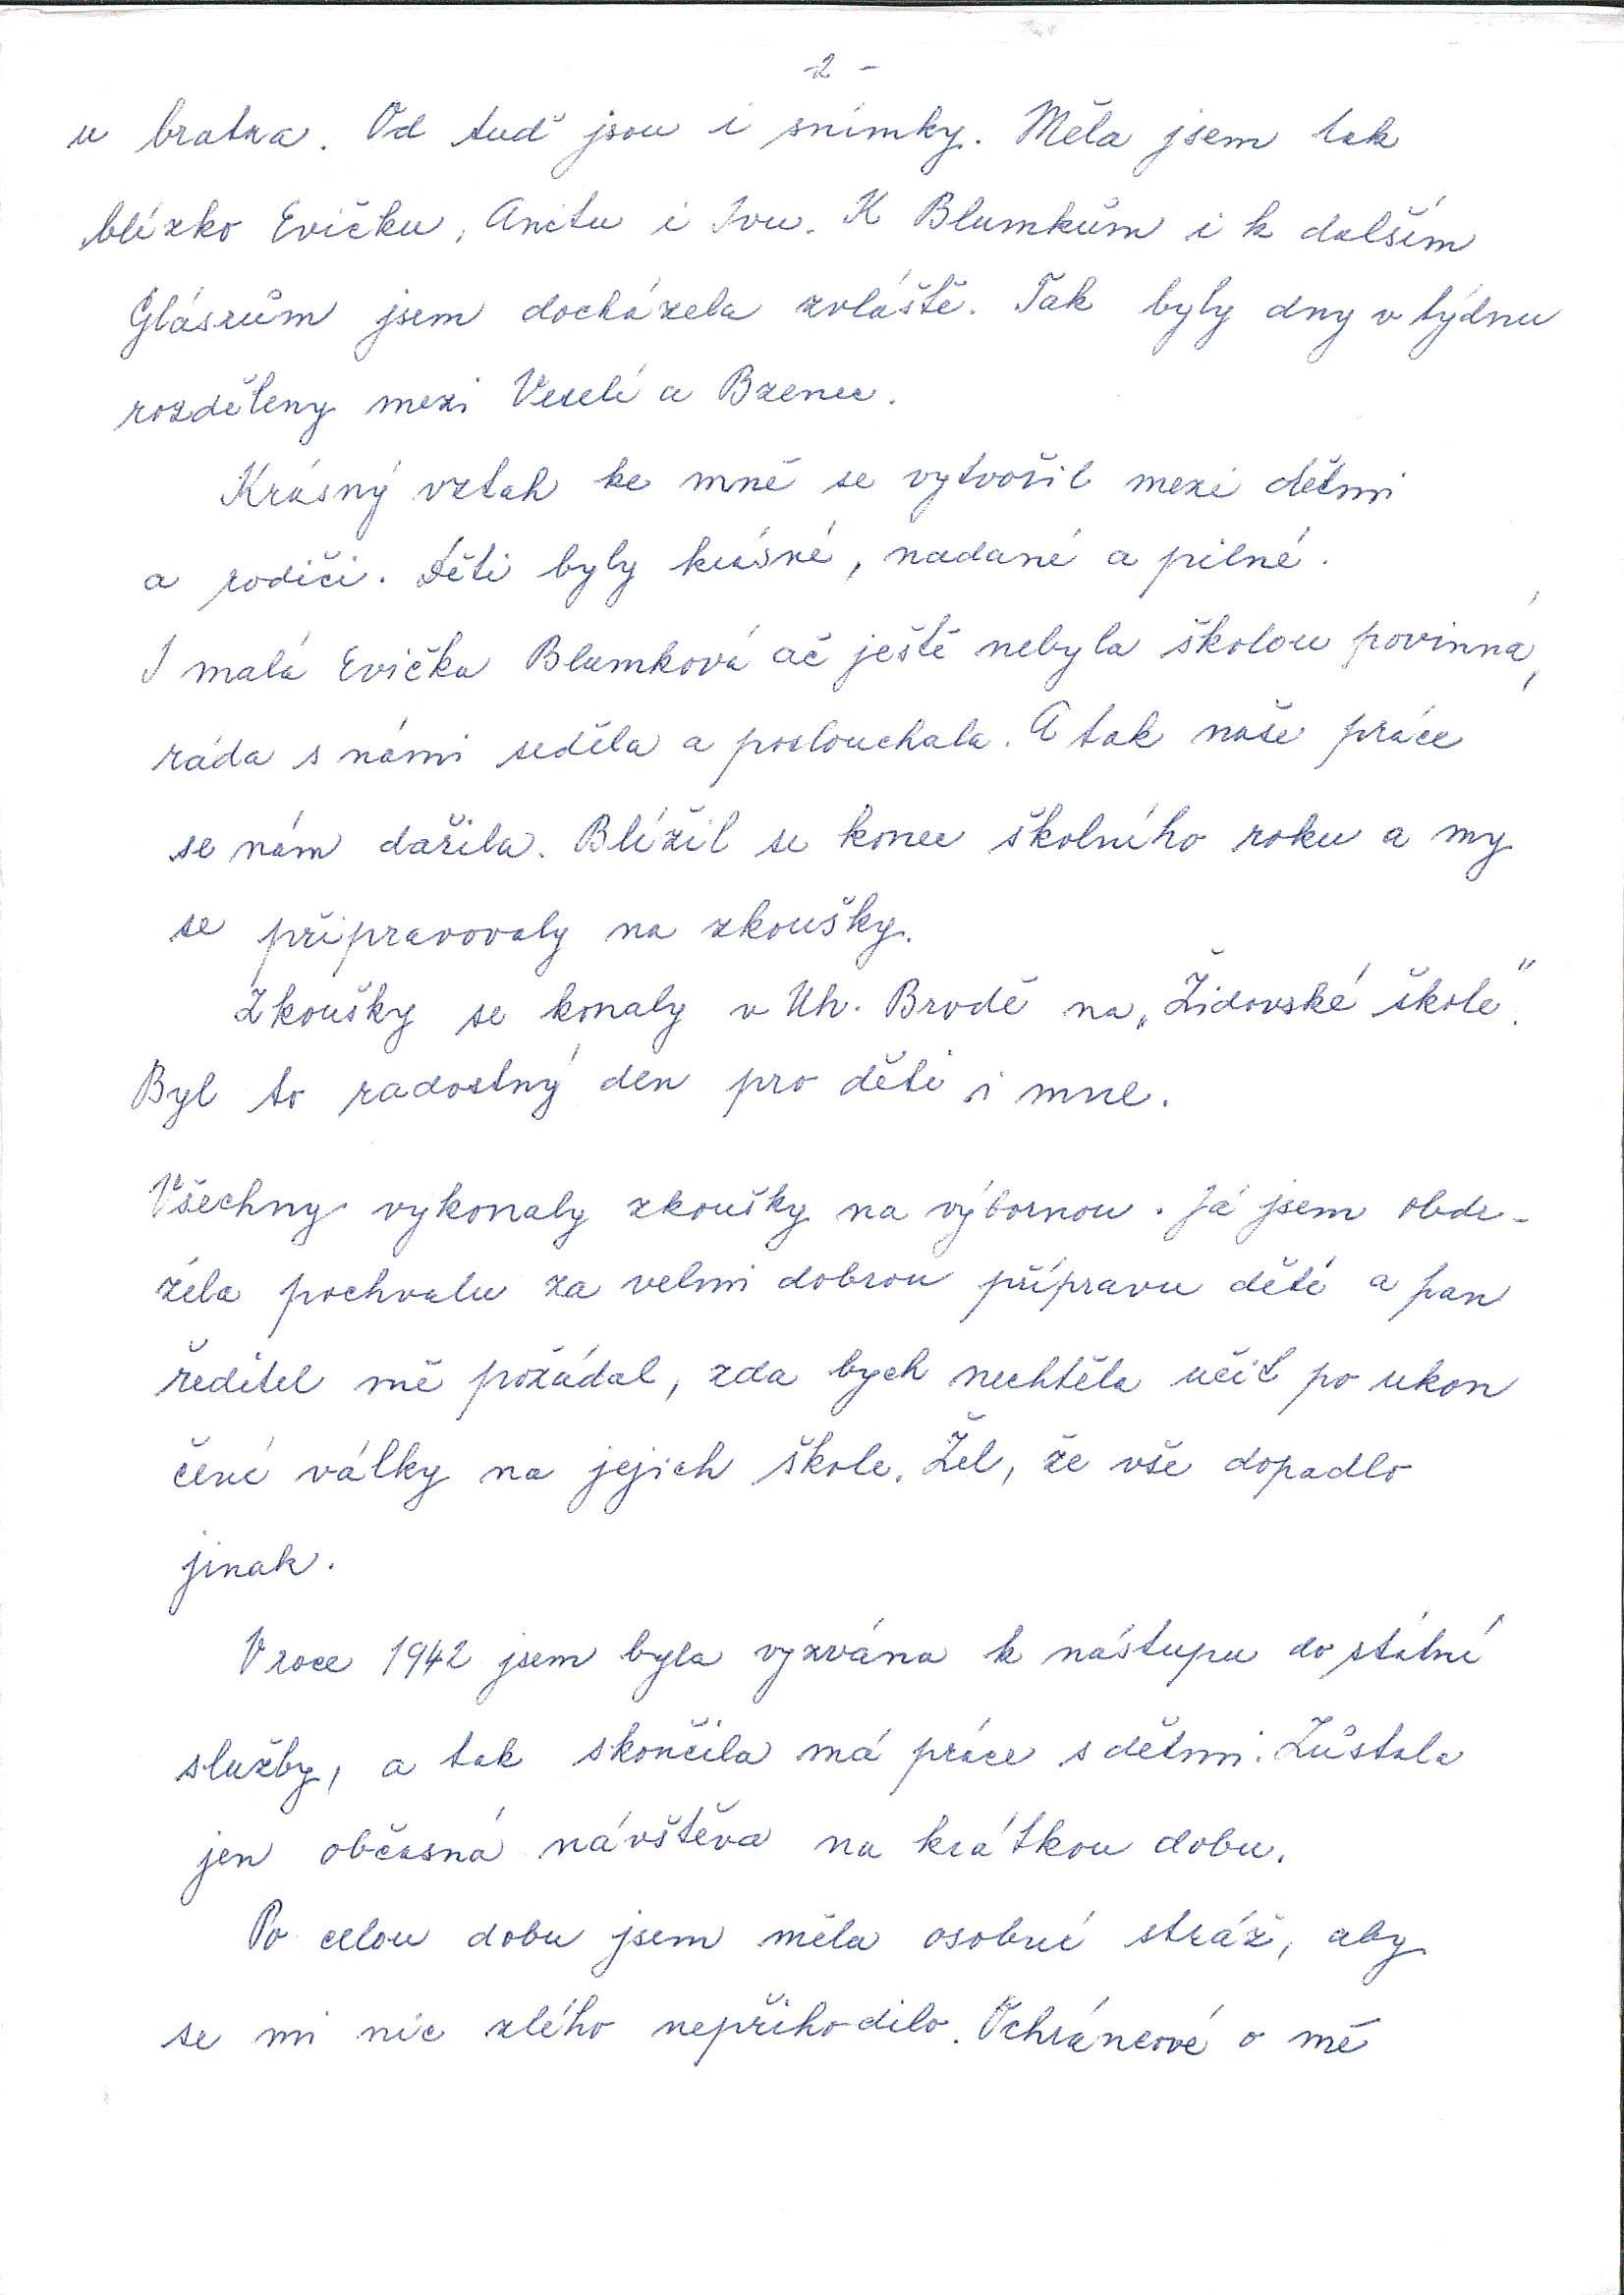 -2-
u bratra. Od tuď jsou i snímky. Měla jsem tak
blízko Evičku, Anitu i Ivu. K Blumkům i k dalším
Glásrům jsem docházela zvláště. Tak byly dny v týdnu
rozděleny mezi Veselí a Bzenec.
Krásný vztah ke mně se vytvořil mezi dětmi
a rodiči. Děti byly krásné, nadané a pilné.
I malá Evička Blumková ač ještě nebyla školou povinná,
ráda s námi seděla a poslouchala. A tak naše práce
se nám dařila. Blížil se konec školního roku a my
se připravovaly na zkoušky.
Zkoušky se konaly v Uh. Brodě na „Židovské škole".
Byl to radostný den pro děti i mne.
Všechny vykonaly zkoušky na výbornou. Já jsem obdr-
žela pochvalu za velmi dobrou přípravu dětí a pan
ředitel mě požádal, zda bych nechtěla učit po ukon
čení války na jejich škole. Žel, že vše dopadlo
jinak.
V roce 1942 jsem byla vyzvána k nástupu do státní
služby, a tak skončila má práce s dětmi. Zůstala
jen občasná návštěva na krátkou dobu.
Po celou dobu jsem měla osobní stráž, aby
se mi nic zlého nepřihodilo. Ochráncové o mě